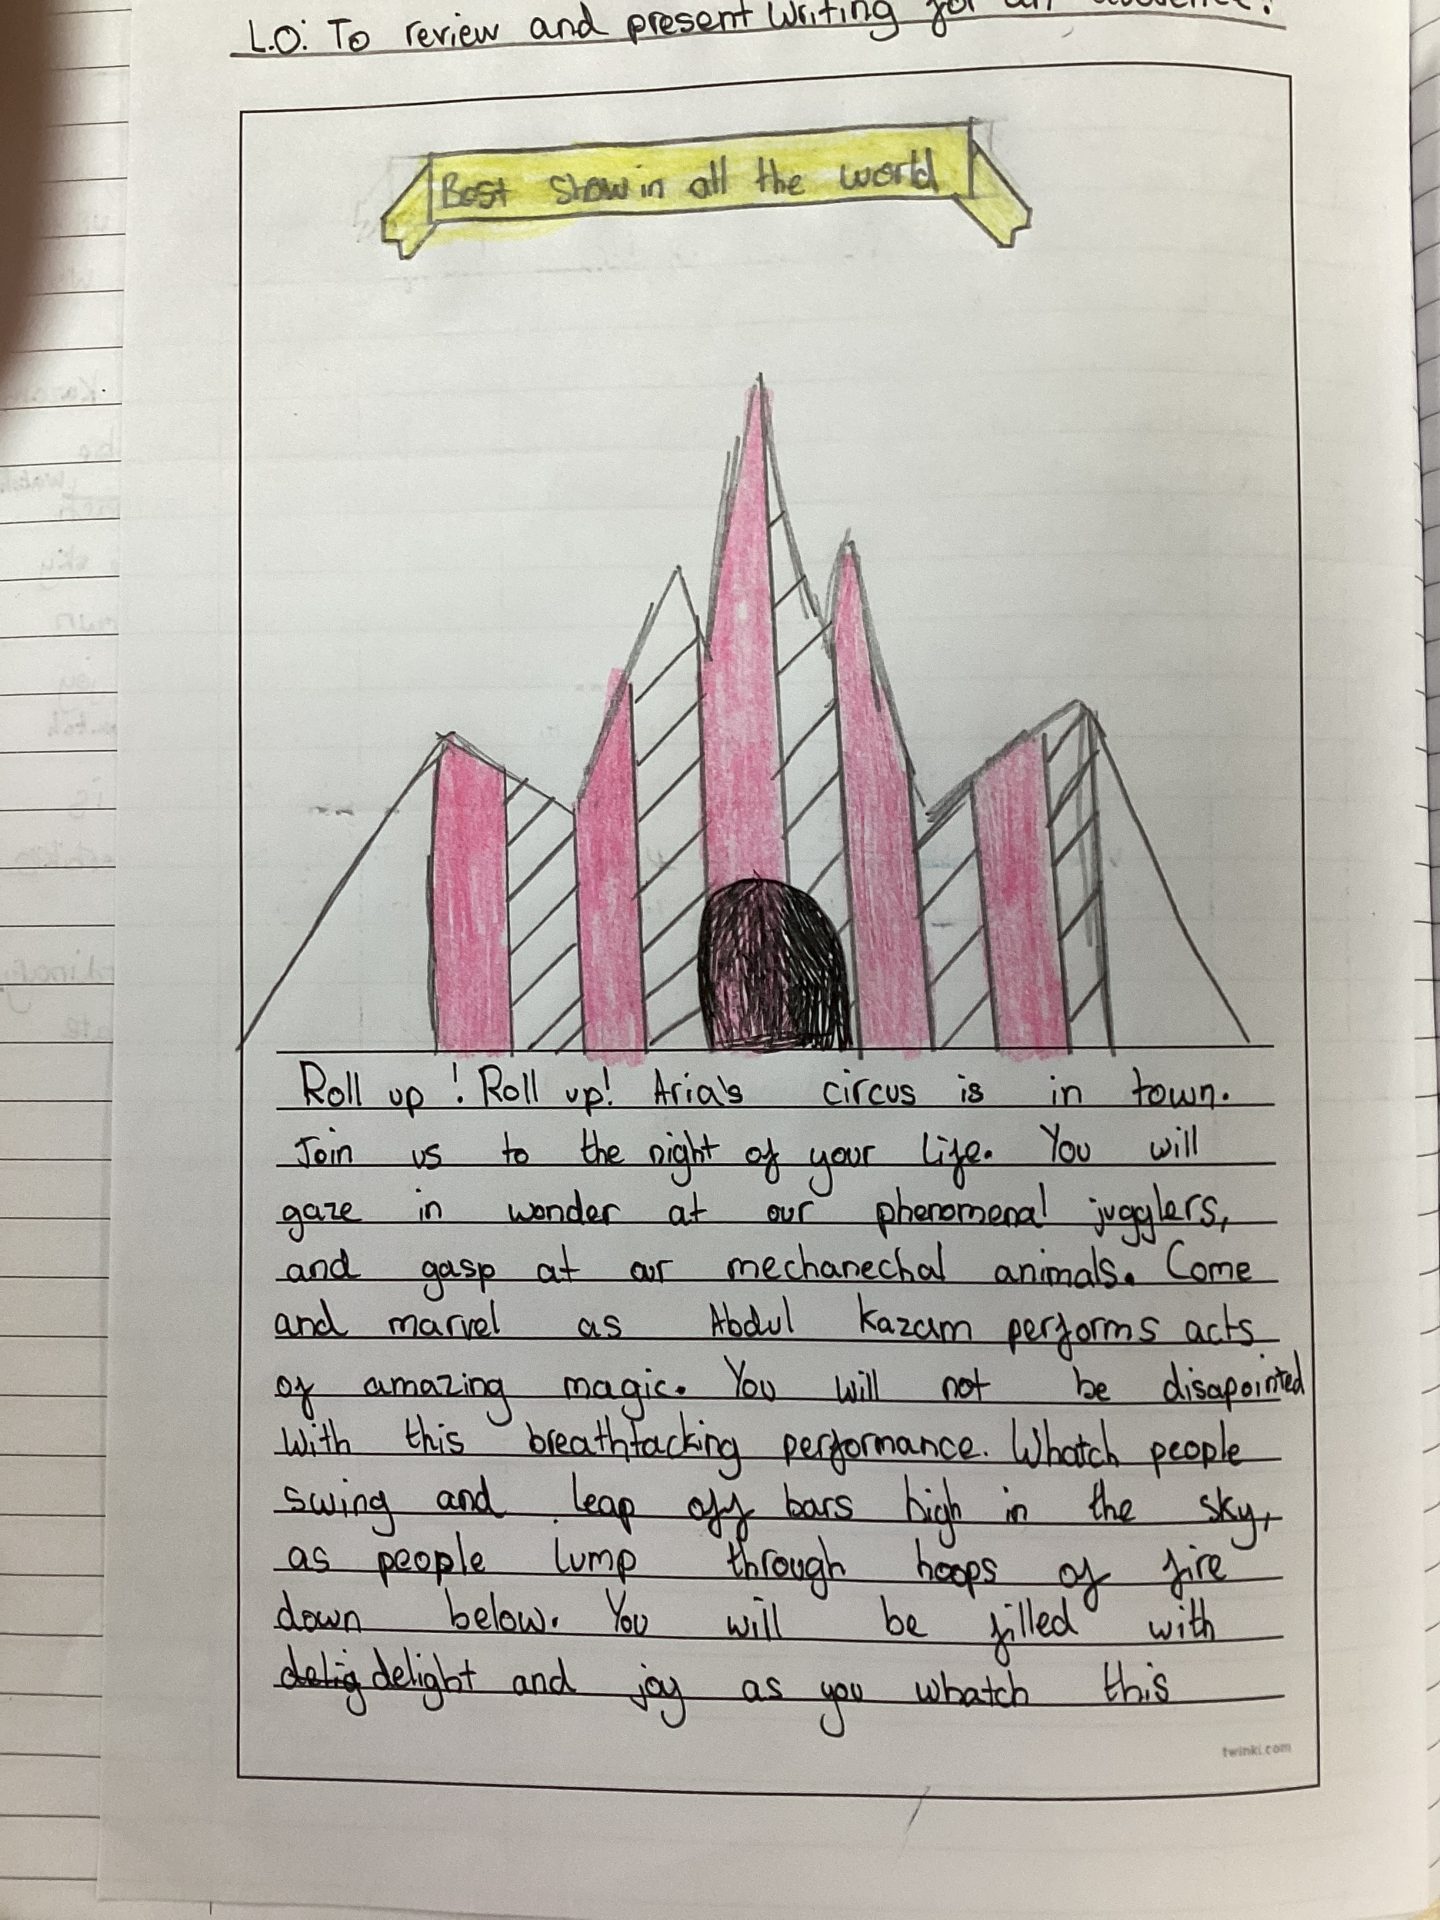 L.O: To review and present writing for an audience.
Best Show in all the world
Roll up! Roll up! Aria's circus is in town.
Join us to the night of your life. You will
gaze in wonder at our phenomenal jugglers,
and gasp at our mechanechal animals. Come
and marvel as Abdul Kazam performs acts
of amazing magic. You will not be disapointed
with this breathtacking performance. Whatch people
swing and leap off bars high in the sky,
as people lump through hoops of fire
down below. You will be filled with
delig delight and joy as you whatch this
twinkl.com